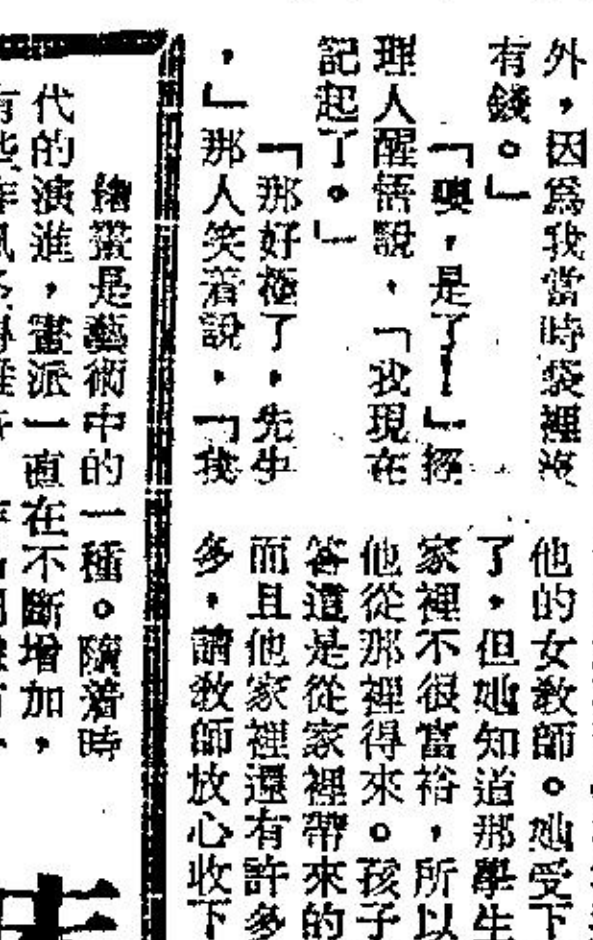 外，因爲我當時袋裡沒
有錢。」
「噢，是了！」經
理人醒悟說，「我現在
記起了。」
「那好極了，先生
，」那人笑着說，「我
他的女敎師。她受下
了，但她知道那學生
家裡不很富裕，所以
他從那裡得來。孩子
答道是從家裡帶來的
而且他家裡還有許多
多，請敎師放心收下
繪畫是藝術中的一種。隨着時
代的演進，畫派一直在不斷增加，